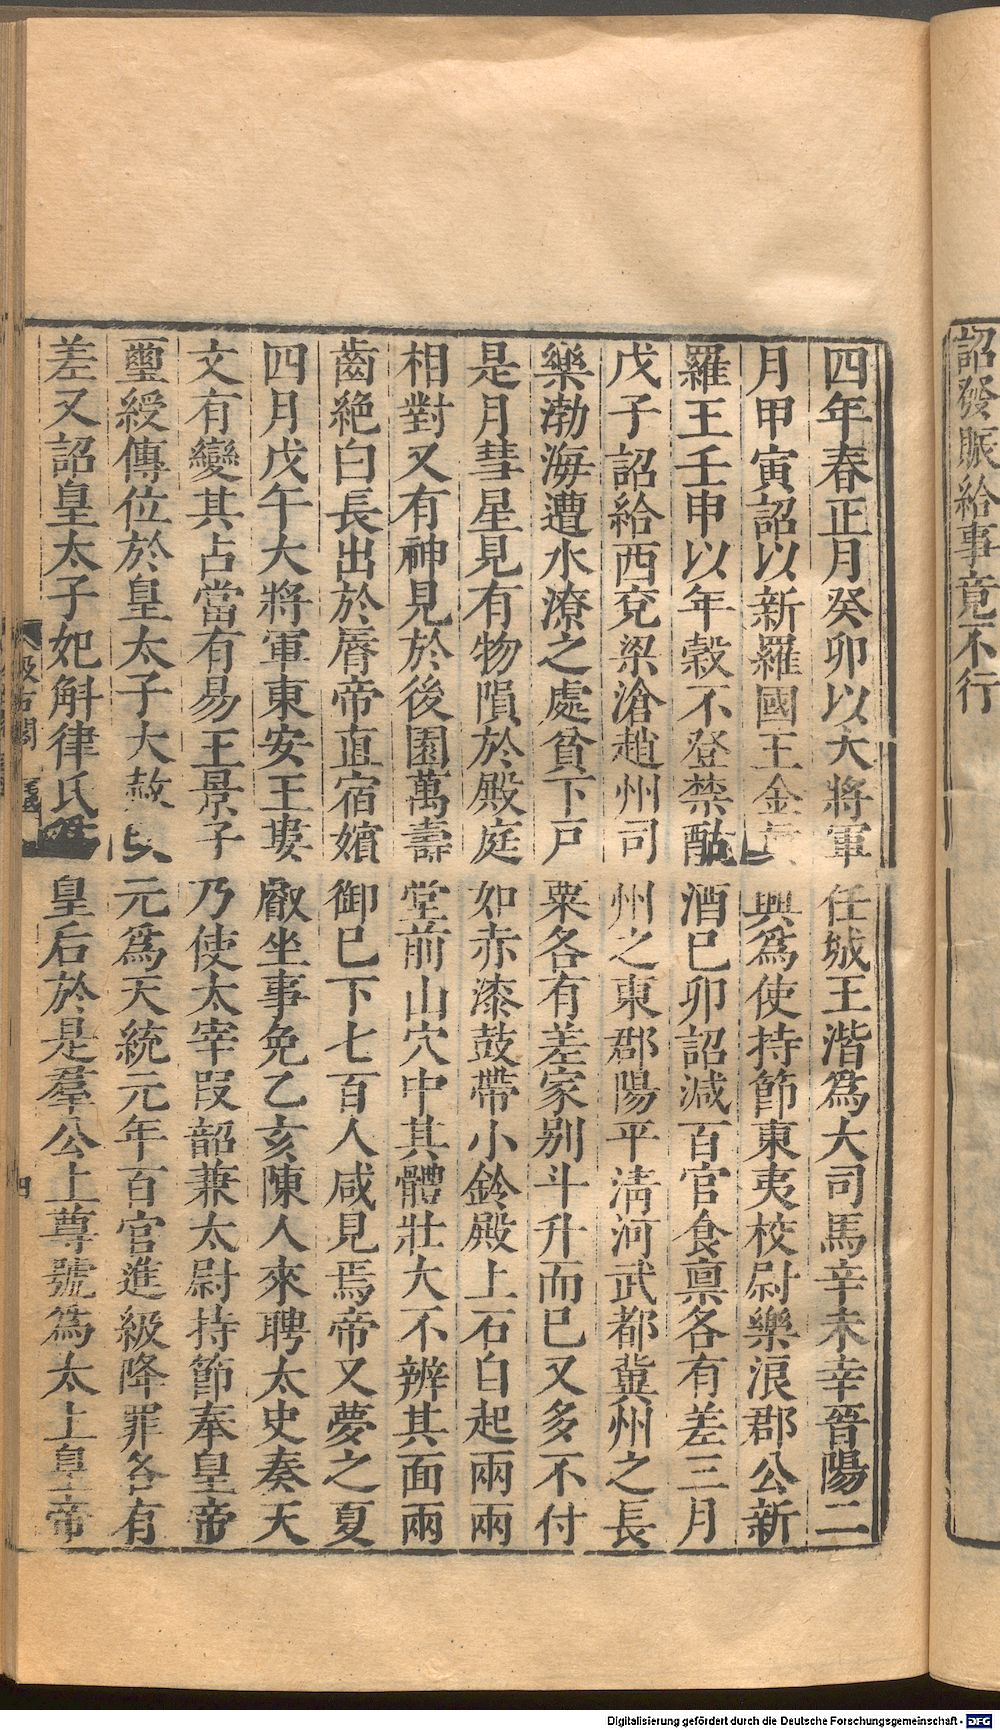 詔發賑給事竟不行
四年春正月癸卯以大將軍任城王湝爲大司馬辛未幸晉陽二
月甲寅詔以新羅國王金眞興爲使持節東夷校尉樂浪郡公新
羅王壬申以年穀不登禁酤酒己卯詔減百官食禀各有差三月
戊子詔給西兗梁滄趙州司州之東郡陽平淸河武都冀州之長
樂渤海遭水潦之處貧下戶粟各有差家别斗升而巳又多不付
是月彗星見有物隕於殿庭如赤漆鼓帶小鈴殿上石自起兩兩
相對又有神見於後園萬壽堂前山穴中其體壯大不辨其面兩
齒絶白長出於脣帝直宿嬪御巳下七百人咸見焉帝又夢之夏
四月戊午大將軍東安王婁叡坐事免乙亥陳人來聘太史奏天
文有變其占當有易王景子乃使太宰叚韶兼太尉持節奉皇帝
璽綬傳位於皇太子大赦元爲天統元年百官進級降罪各有
差又詔皇太子妃斛律氏爲皇后於是羣公上尊號爲太上皇帝
汲古閣
四
Digitalisierung gefördert durch die Deutsche Forschungsgemeinschaft - DFG